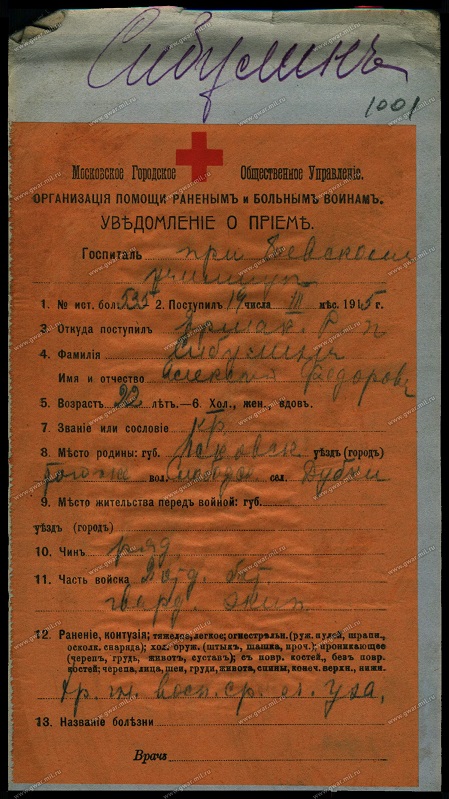 Сибулинъ
1001
Московское Городское Общественное Управленіе.
ОРГАНИЗАЦІЯ ПОМОЩИ РАНЕНЫМЪ и БОЛЬНЫМЪ ВОИНАМЪ.
УВѢДОМЛЕНІЕ О ПРІЕМѢ.
Госпиталь при
1. № ист. бол. 535 2. Поступил 19 числа III мѣс. 1915 г.
3. Откуда поступил
4. Фамилія Сибулинъ
Имя и отчество Алексѣй Федоровъ
5. Возраст 22 лѣт.—6. Хол., жен., вдов.
7. Званіе или сословіе кр.
8. Мѣсто родины: губ. Московск уѣзд (город)
вол. сел. Дубки
9. Мѣсто жительства перед войной: губ.
уѣзд (город)
10. Чин ряд.
11. Часть войска бат.
гвард. экип.
12. Раненіе, контузія; тяжелое, легкое; огнестрѣльн. (руж. пулей, шрапн.,
осколк. снаряда); хол. оруж. (штык, шашка, проч.); проникающее
(череп, грудь, живот, сустав); с повр. костей, без повр.
костей; черепа, лица, шеи, груди, живота, спины, конеч. верхн., нижн.
Хр. гн. восп. ср. л. уха,
13. Названіе болѣзни
Врач
www.gwar.mil.ru